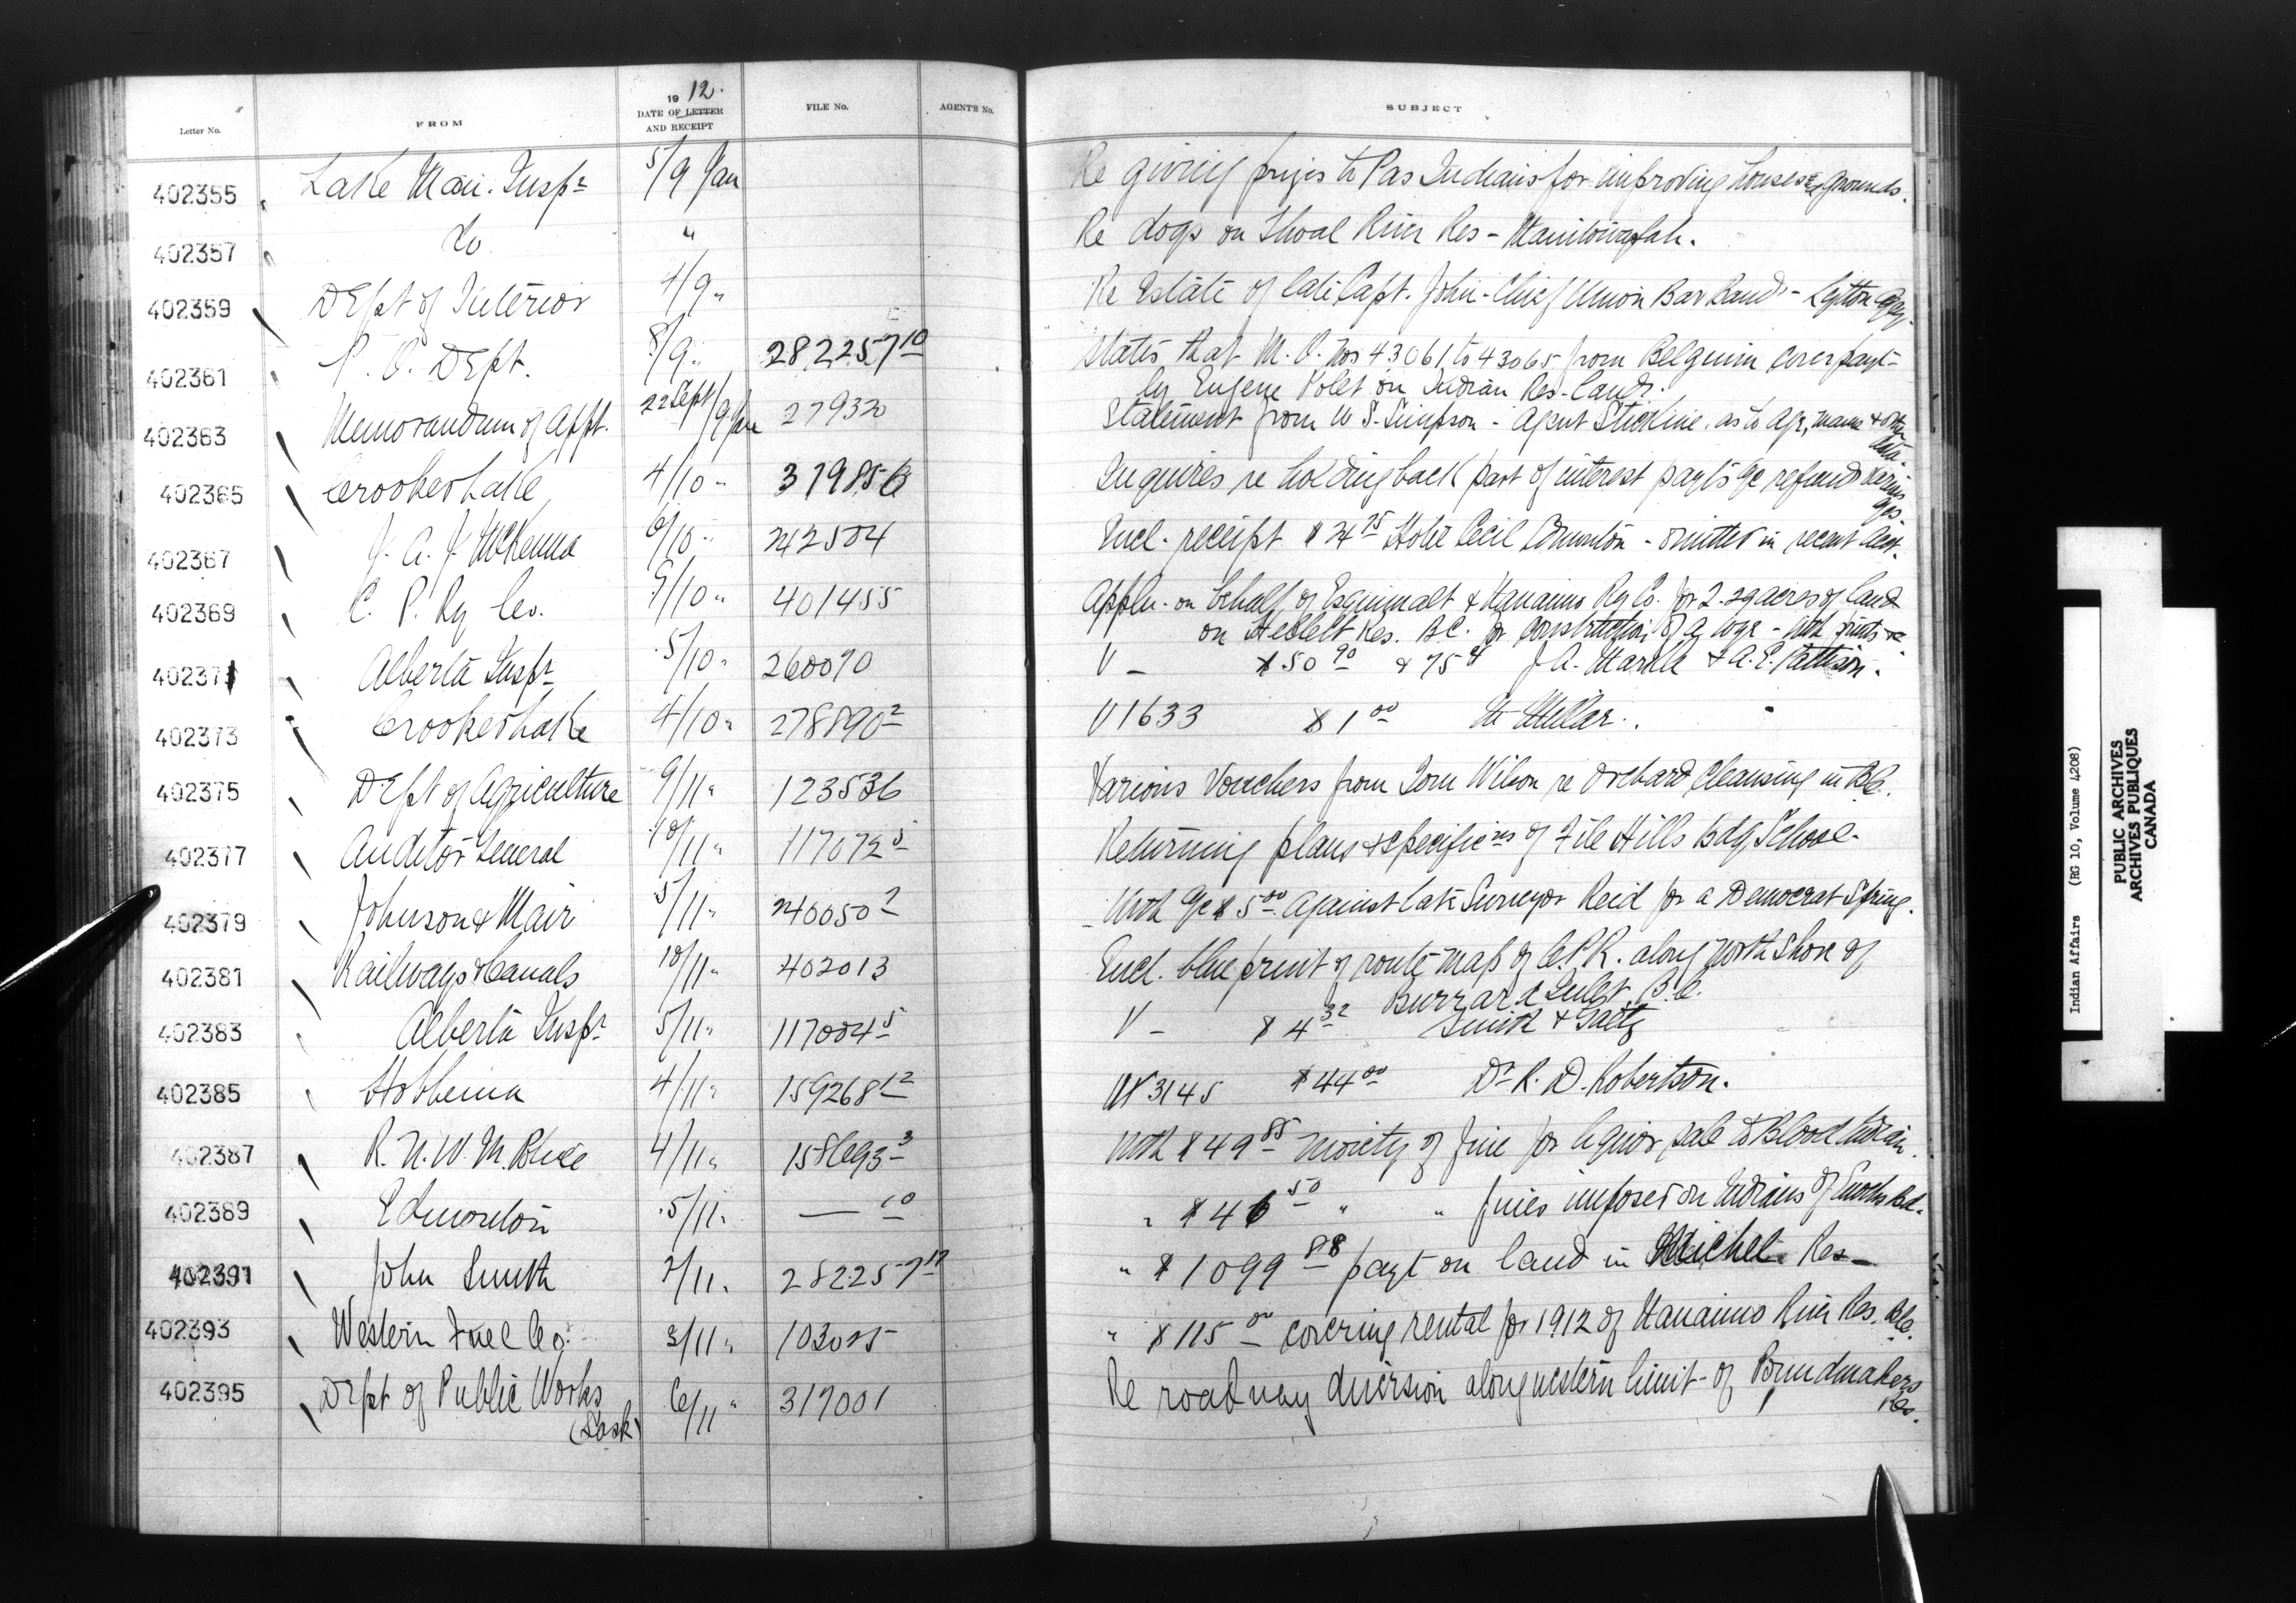 19 12.
Letter No. FROM DATE OF LETTER AND RECEIPT FILE No. AGENT'S No. SUBJECT
402355 Lake Man. Inspr 5/9 Jan Re giving prizes to Pas Indians for improving houses & grounds.
402357 do " Re dogs on Shoal River Res -
402359 Dept of Interior 4/9 " Re Estate of late Capt. John - Chief Union Bar Band - Lytton Agcy.
402361 P. O. Dept. 8/9 " 282257 10 States that M. O. Nos 43061 to 43065 from Belguim cover payt-
by Eugene on Indian Res. land.
402363 Memorandum of appt. 22 Sept/9 Jan 27932 Statement from W S. Simpson - Agent Stickine. as to age, name & other
data.
402365 Crooked Lake 4/10 " 379856 Inquires re holding back part of interest payts a/c refund
402367 J. A. J. McKenna 6/10 " 242504 Encl. receipt $24 75 Hotel Cecil Edmonton - omitted in recent acct.
402369 C. P. Ry Co. 9/10 " 401455 Appln. on behalf of Esquimalt & Nanaimo Ry Co. for 2.29 acres of land
on Res. B.C. for construction of a - with prints
402371 Alberta Inspr 5/10 " 260090 V - $50 90 & 75 ¢ J A. & A. E. Pattison.
402373 Crooked Lake 4/10 " 278890 2 V 1633 $1 00 Millar.
402375 Dept of Agriculture 9/11 " 123536 Various Vouchers from Tom Wilson re Orchard Cleansing in B.C.
402377 Auditor General 10/11 " 117072 5 Returning plans & specificns of File Hills Bdg School.
402379 Johnson & Mair 5/11 " 240050 2 With a/c $5 00 against late Surveyor Reid for a Democrat Spring.
402381 Railways & Canals 10/11 " 402013 Encl. blue print of route map of C.P.R. along North Shore of
Burrard Inlet, B.C.
402383 Alberta Inspr 5/11 " 117004 5 V - $4 32 Smith &
402385 Hobbema 4/11 " 159268 12 V 3145 $44 00 Dr R. D. Robertson.
402387 R. N. W. M. Police 4/11 " 158693 3 With $49 85 moiety of fine for liquor sale to Blood Indian.
402389 Edmonton 5/11 " — 10 " $46 50 " " fines imposed on Indians of Enochs Bd.
402391 John Smith 2/11 " 282257 17 " $1099 88 payt on land in Michel Res -
402393 Western Fuel Co. 3/11 " 103025 " $115 00 covering rental for 1912 of Nanaimo River Res. B.C.
402395 Dept of Public Works 6/11 " 317001 Re roadway diversion along western limit of Poundmakers
(Sask) Res.
Indian Affairs (RG 10, Volume 4208)
PUBLIC ARCHIVES
ARCHIVES PUBLIQUES
CANADA